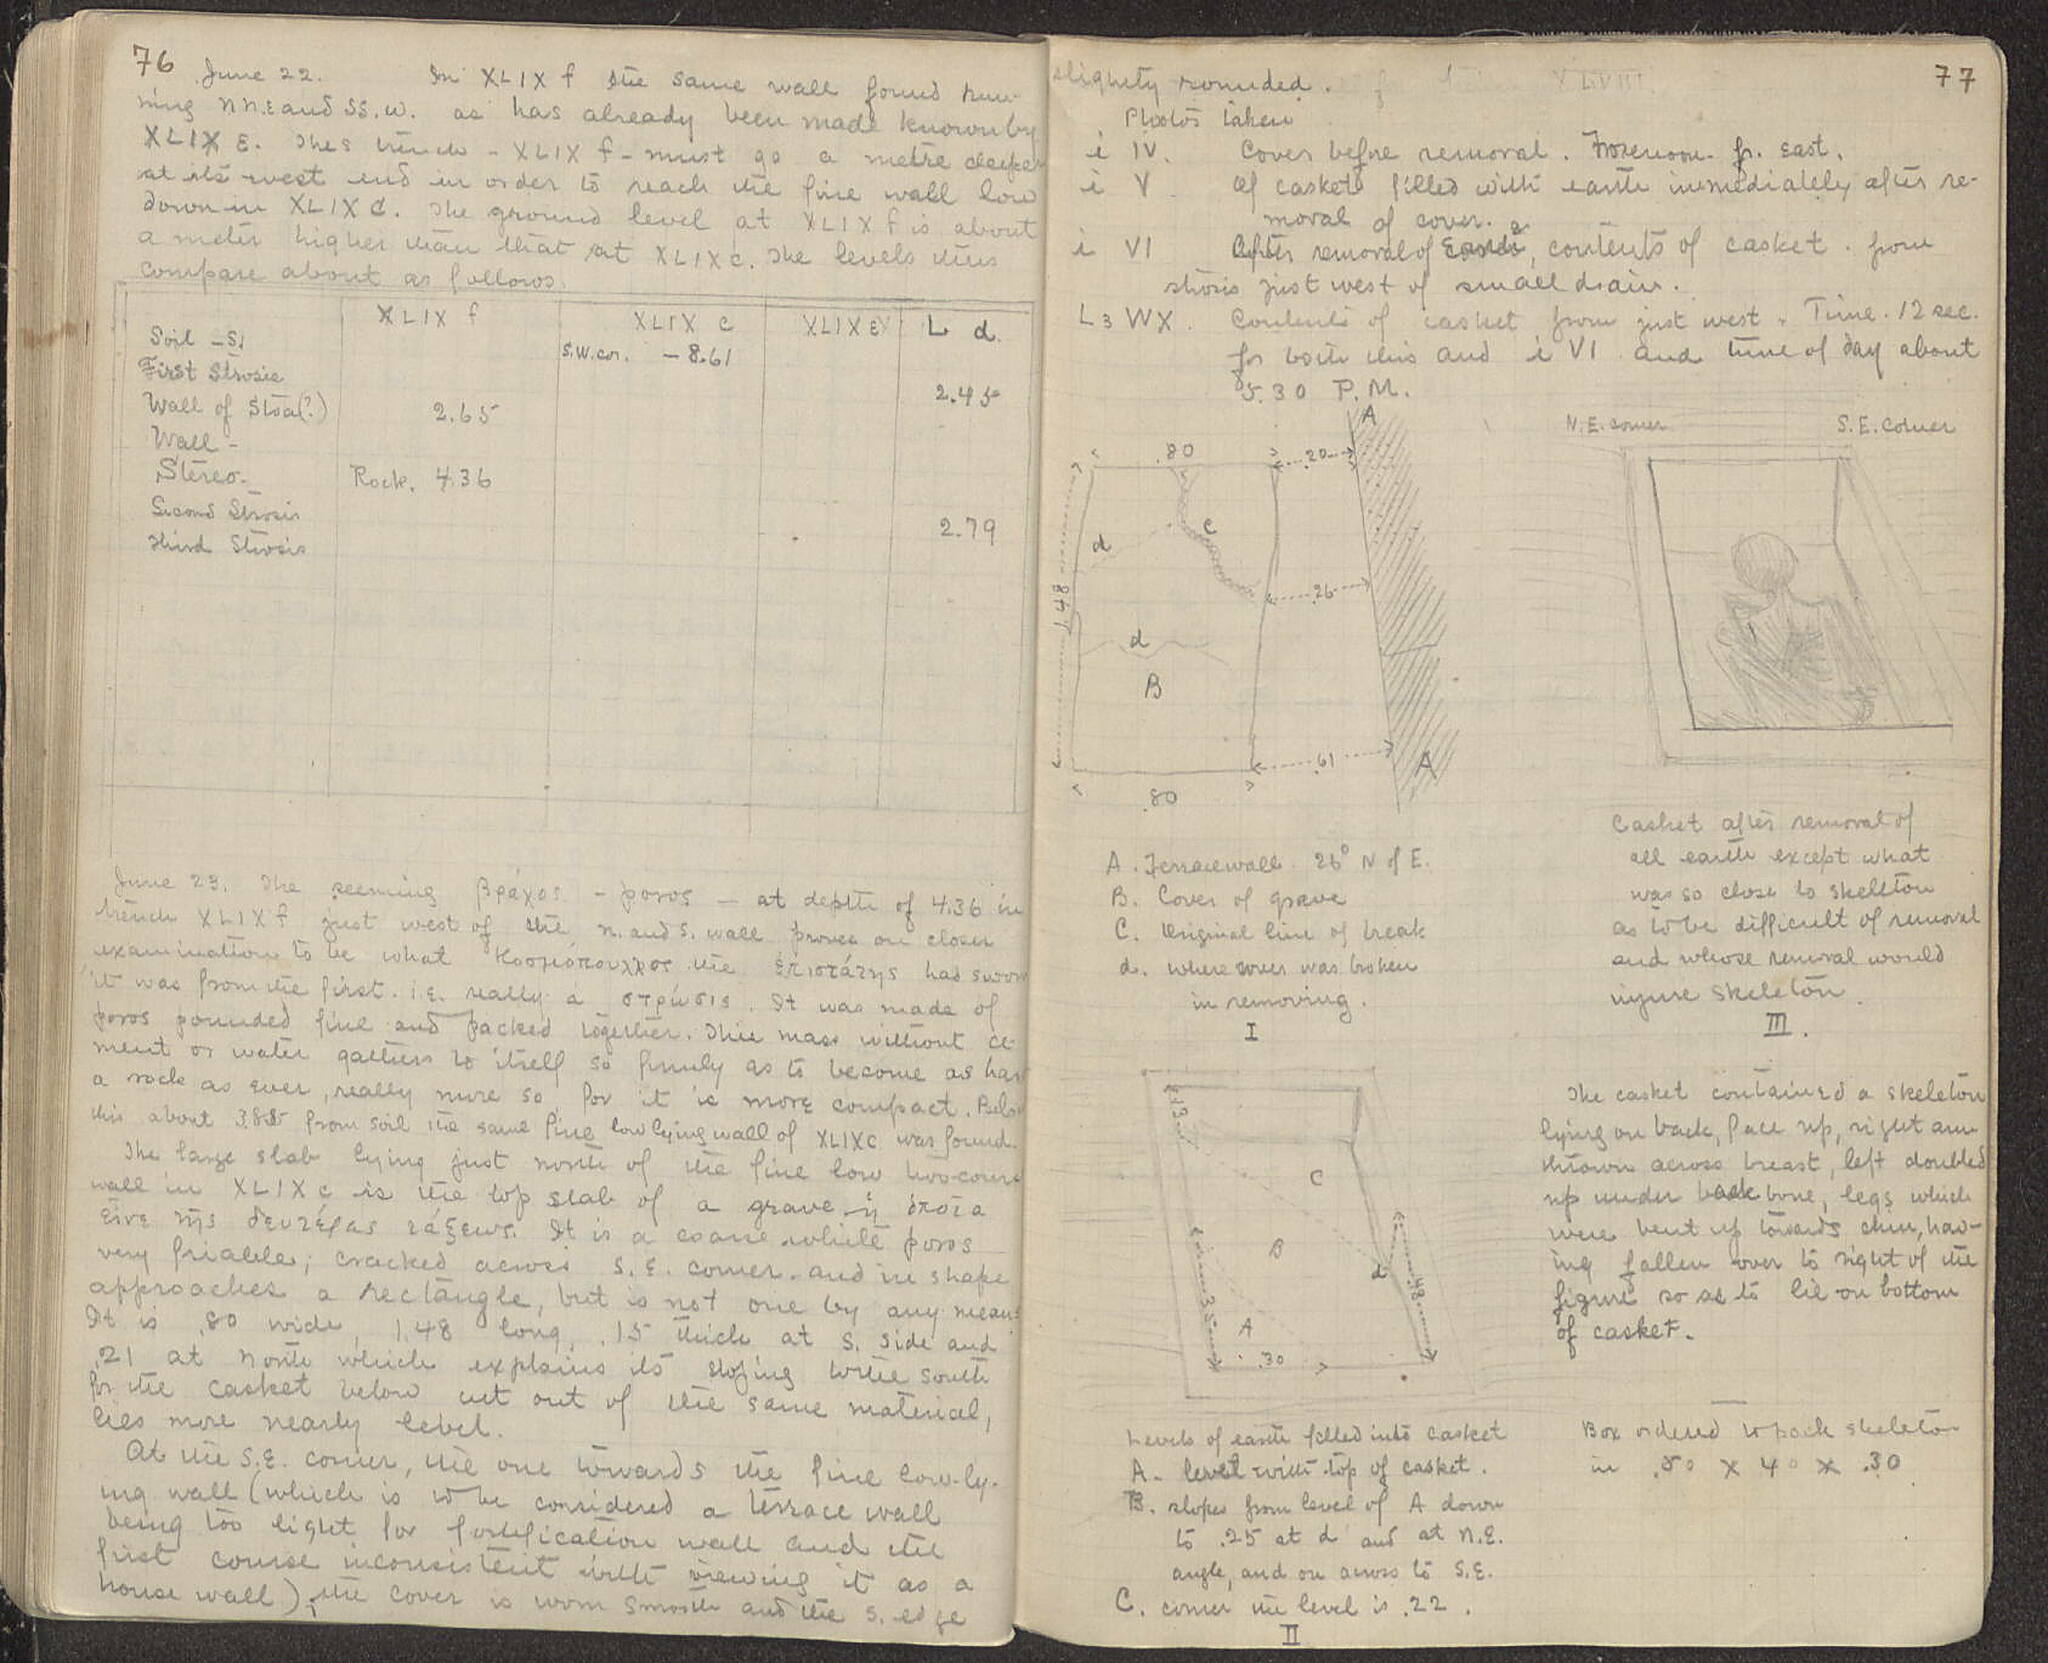 76
June 22. In XLIX f the same wall found run-
ning N.N.E and S.S.W. as has already been made known by
XLIX E. This trench - XLIX f - must go a metre deeper
at its west end in order to reach the fine wall low
down in XLIX C. The ground level at XLIX f is about
a meter higher than that at XLIX c. The levels thus
compare about as follows.
XLIX f XLIX c XLIX E L d.
Soil - S. S.W. cor. - 8.61
First Strosis 2.45
Wall of Stoa(?) 2.65
Wall -
Stereo. Rock. 4.36
Second Strosis 2.79
Third Strosis
June 23. The seeming βράχος - poros - at depth of 4.36 in
trench XLIX f just west of the n. and s. wall proves on closer
examination to be what the ἐπιστάτης has sworn
it was from the first. i.e. really a στρώσις. It was made of
poros pounded fine and packed together. This mass without ce-
ment or water gathers to itself so firmly as to become as hard
a rock as ever, really more so for it is more compact. Below
this about 3.85 from soil the same fine low lying wall of XLIX c was found.
The large slab lying just north of the fine low two-course
wall in XLIX c is the top slab of a grave ἡ ὁποία
εἶνε τῆς δευτέρας τάξεως. It is a coarse white poros
very friable; cracked across S.E. corner and in shape
approaches a rectangle, but is not one by any means.
It is .80 wide, 1.48 long, .15 thick at S. side and
.21 at north which explains its sloping to the south
for the casket below cut out of the same material,
lies more nearly level.
At the S.E. corner, the one towards the fine low-ly-
ing wall (which is to be considered a terrace wall
being too light for fortification wall and the
first course inconsistent with viewing it as a
house wall), the cover is worn smooth and the S. edge
77
slightly rounded.
Photos taken
i IV. Cover before removal. Forenoon fr. East.
i V. Of casket filled with earth immediately after re-
moval of cover.
i VI After removal of earth, contents of casket. from
strosis just west of small drain.
L3 WX. Contents of casket from just west. Time. 12 sec.
for both this and i VI and time of day about
5.30 P.M.
A
.80 .20
C
d
1.48
.26
d
B
.61
A
.80
N.E. corner S.E. Corner
A. Terrace wall 26° N of E.
B. Cover of grave
C. Original line of break
d. where cover was broken
in removing.
I
Casket after removal of
all earth except what
was so close to skeleton
as to be difficult of removal
and whose removal would
injure skeleton.
III.
.13
C
B
d
.48
.35
A
.30
Levels of earth filled into casket
A - level with top of casket.
B. slopes from level of A down
to .25 at d and at N.E.
angle, and on across to S.E.
C. corner the level is .22.
II
The casket contained a skeleton
lying on back, face up, right arm
thrown across breast, left doubled
up under back bone, legs which
were bent up towards chin, hav-
ing fallen over to right of the
figure so as to lie on bottom
of casket.
Box ordered to pack skeleton
in .50 x 40 x .30